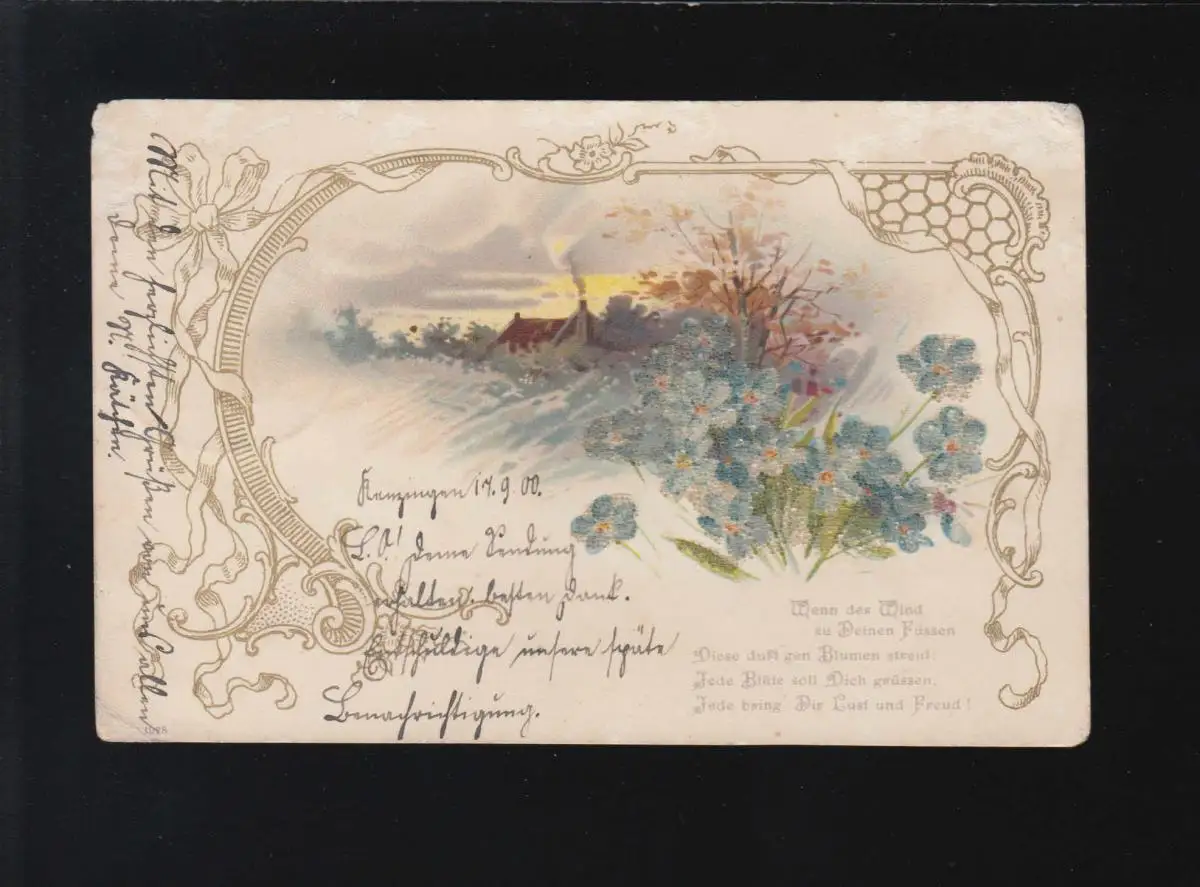 Kenzingen 17.9.00.
L. O.! Deine Sendung
erhalten. besten Dank.
Entschuldige unsere späte
Benachrichtigung.
Mit den herzlichsten Grüßen von uns allen
Deine Kätchen.
Wenn der Wind
zu Deinen Füssen
Diese duft'gen Blumen streut:
Jede Blüte soll Dich grüssen,
Jede bring' Dir Lust und Freud!